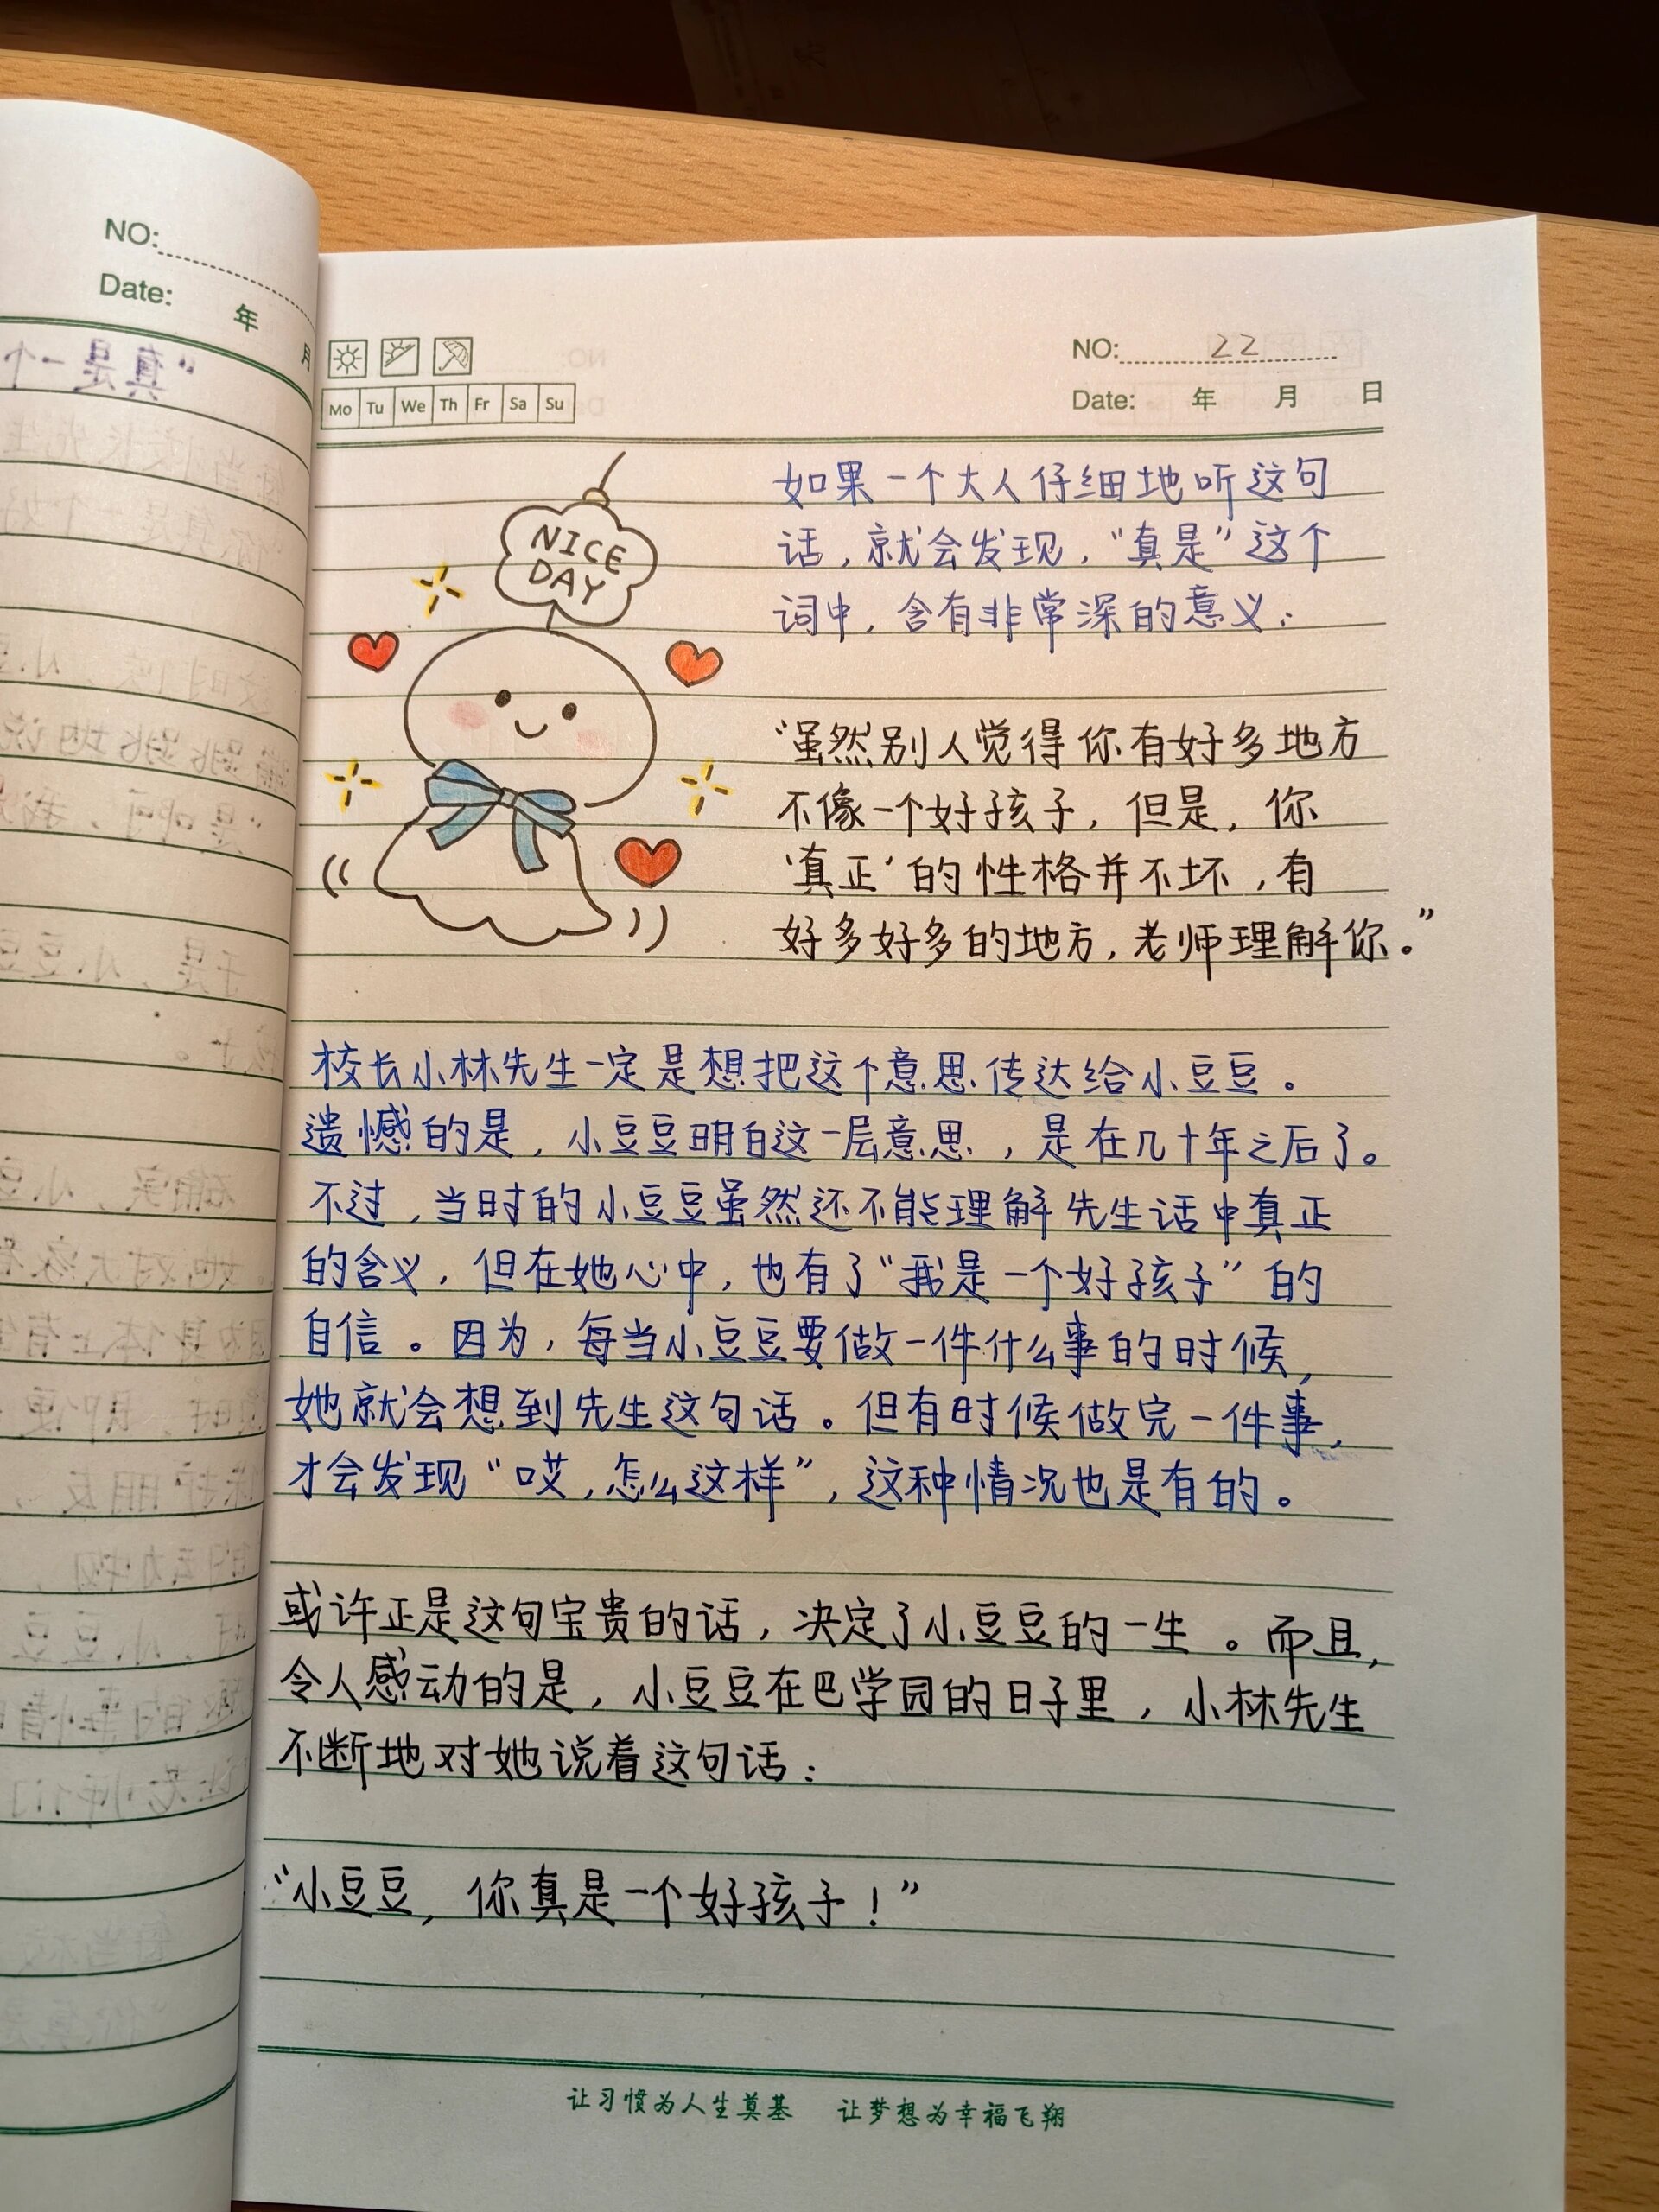 NO:
Date: 年 月
NO: 22
Mo Tu We Th Fr Sa Su
Date: 年 月 日
NICE
DAY
如果一个大人仔细地听这句
话，就会发现，“真是”这个
词中，含有非常深的意义：
“虽然别人觉得你有好多地方
不像一个好孩子，但是，你
‘真正’的性格并不坏，有
好多好多的地方，老师理解你。”
校长小林先生一定是想把这个意思传达给小豆豆。
遗憾的是，小豆豆明白这一层意思，是在几十年之后了。
不过，当时的小豆豆虽然还不能理解先生话中真正
的含义，但在她心中，也有了“我是一个好孩子”的
自信。因为，每当小豆豆要做一件什么事的时候，
她就会想到先生这句话。但有时候做完一件事，
才会发现“哎，怎么这样”，这种情况也是有的。
或许正是这句宝贵的话，决定了小豆豆的一生。而且，
令人感动的是，小豆豆在巴学园的日子里，小林先生
不断地对她说着这句话：
“小豆豆，你真是一个好孩子！”
让习惯为人生奠基 让梦想为幸福飞翔